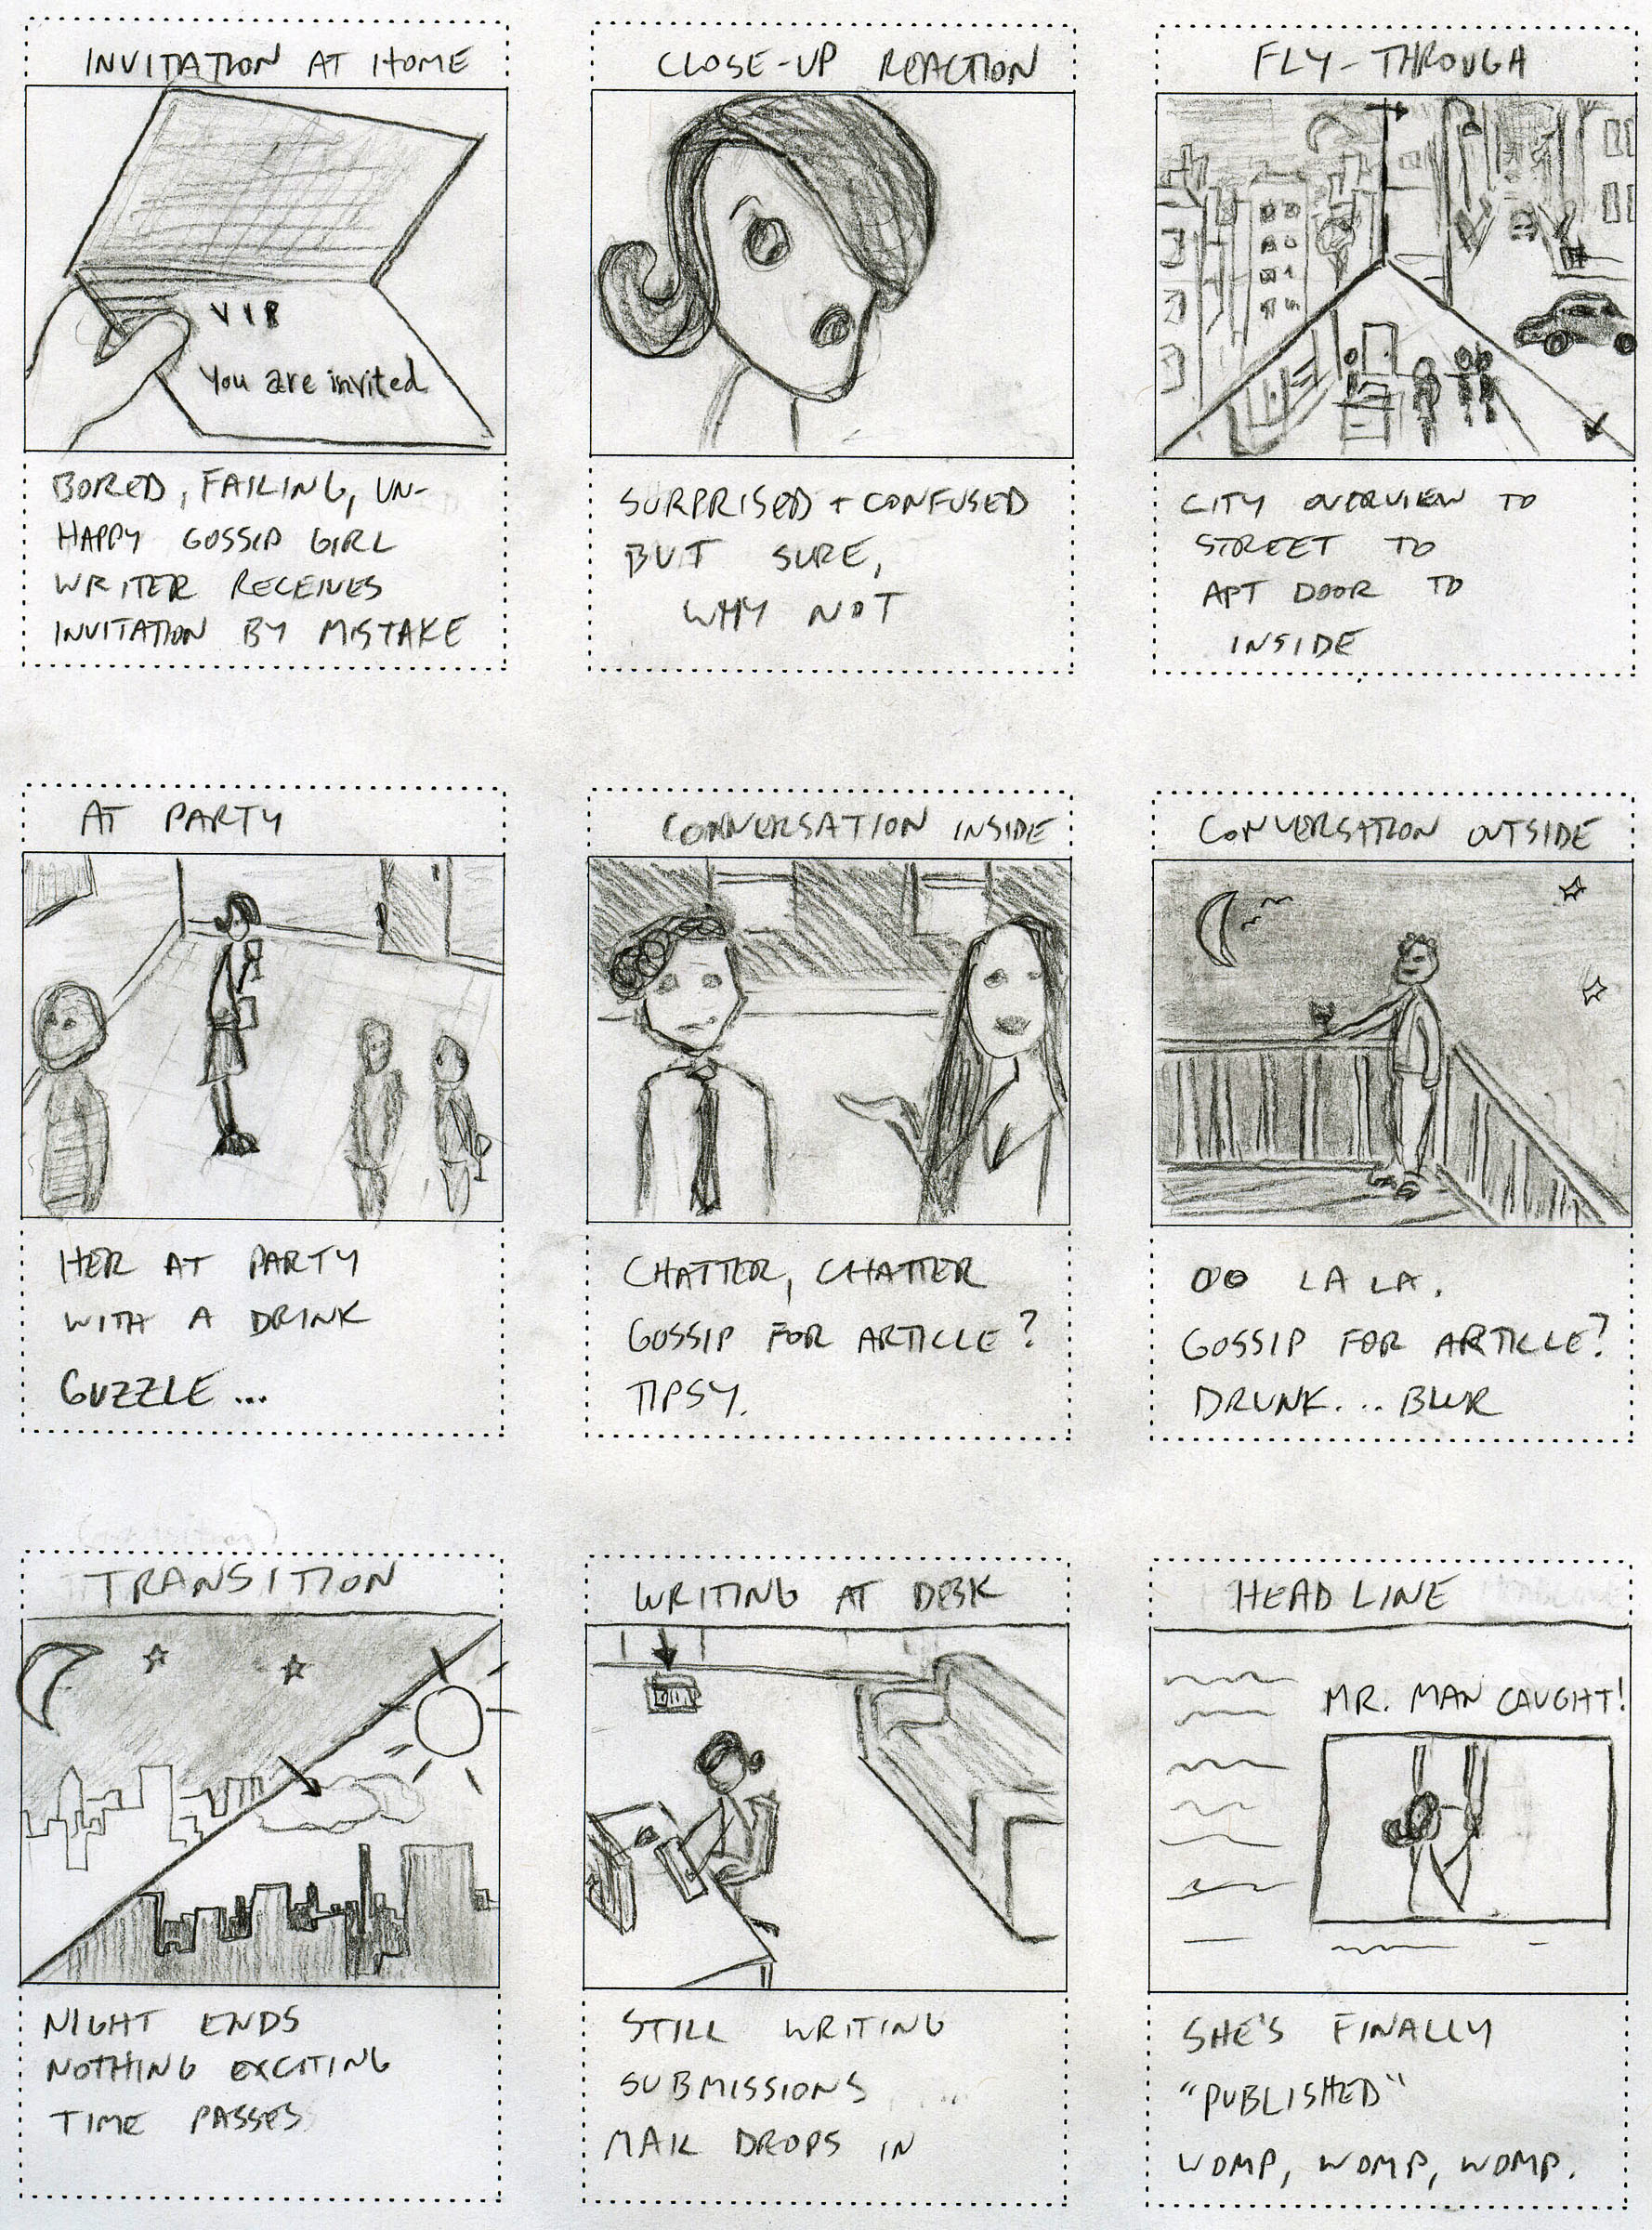 INVITATION AT HOME
VIP
You are invited
BORED, FAILING, UN-
HAPPY GOSSIP GIRL
WRITER RECEIVES
INVITATION BY MISTAKE
CLOSE-UP REACTION
SURPRISED + CONFUSED
BUT SURE,
WHY NOT
FLY-THROUGH
CITY OVERVIEW TO
STREET TO
APT DOOR TO
INSIDE
AT PARTY
HER AT PARTY
WITH A DRINK
GUZZLE...
CONVERSATION INSIDE
CHATTER, CHATTER
GOSSIP FOR ARTICLE?
TIPSY.
CONVERSATION OUTSIDE
OO LA LA.
GOSSIP FOR ARTICLE?
DRUNK... BLUR
TRANSITION
NIGHT ENDS
NOTHING EXCITING
TIME PASSES
WRITING AT DESK
STILL WRITING
SUBMISSIONS
MAIL DROPS IN
HEADLINE
MR. MAN CAUGHT!
SHE'S FINALLY
"PUBLISHED"
WOMP, WOMP, WOMP.